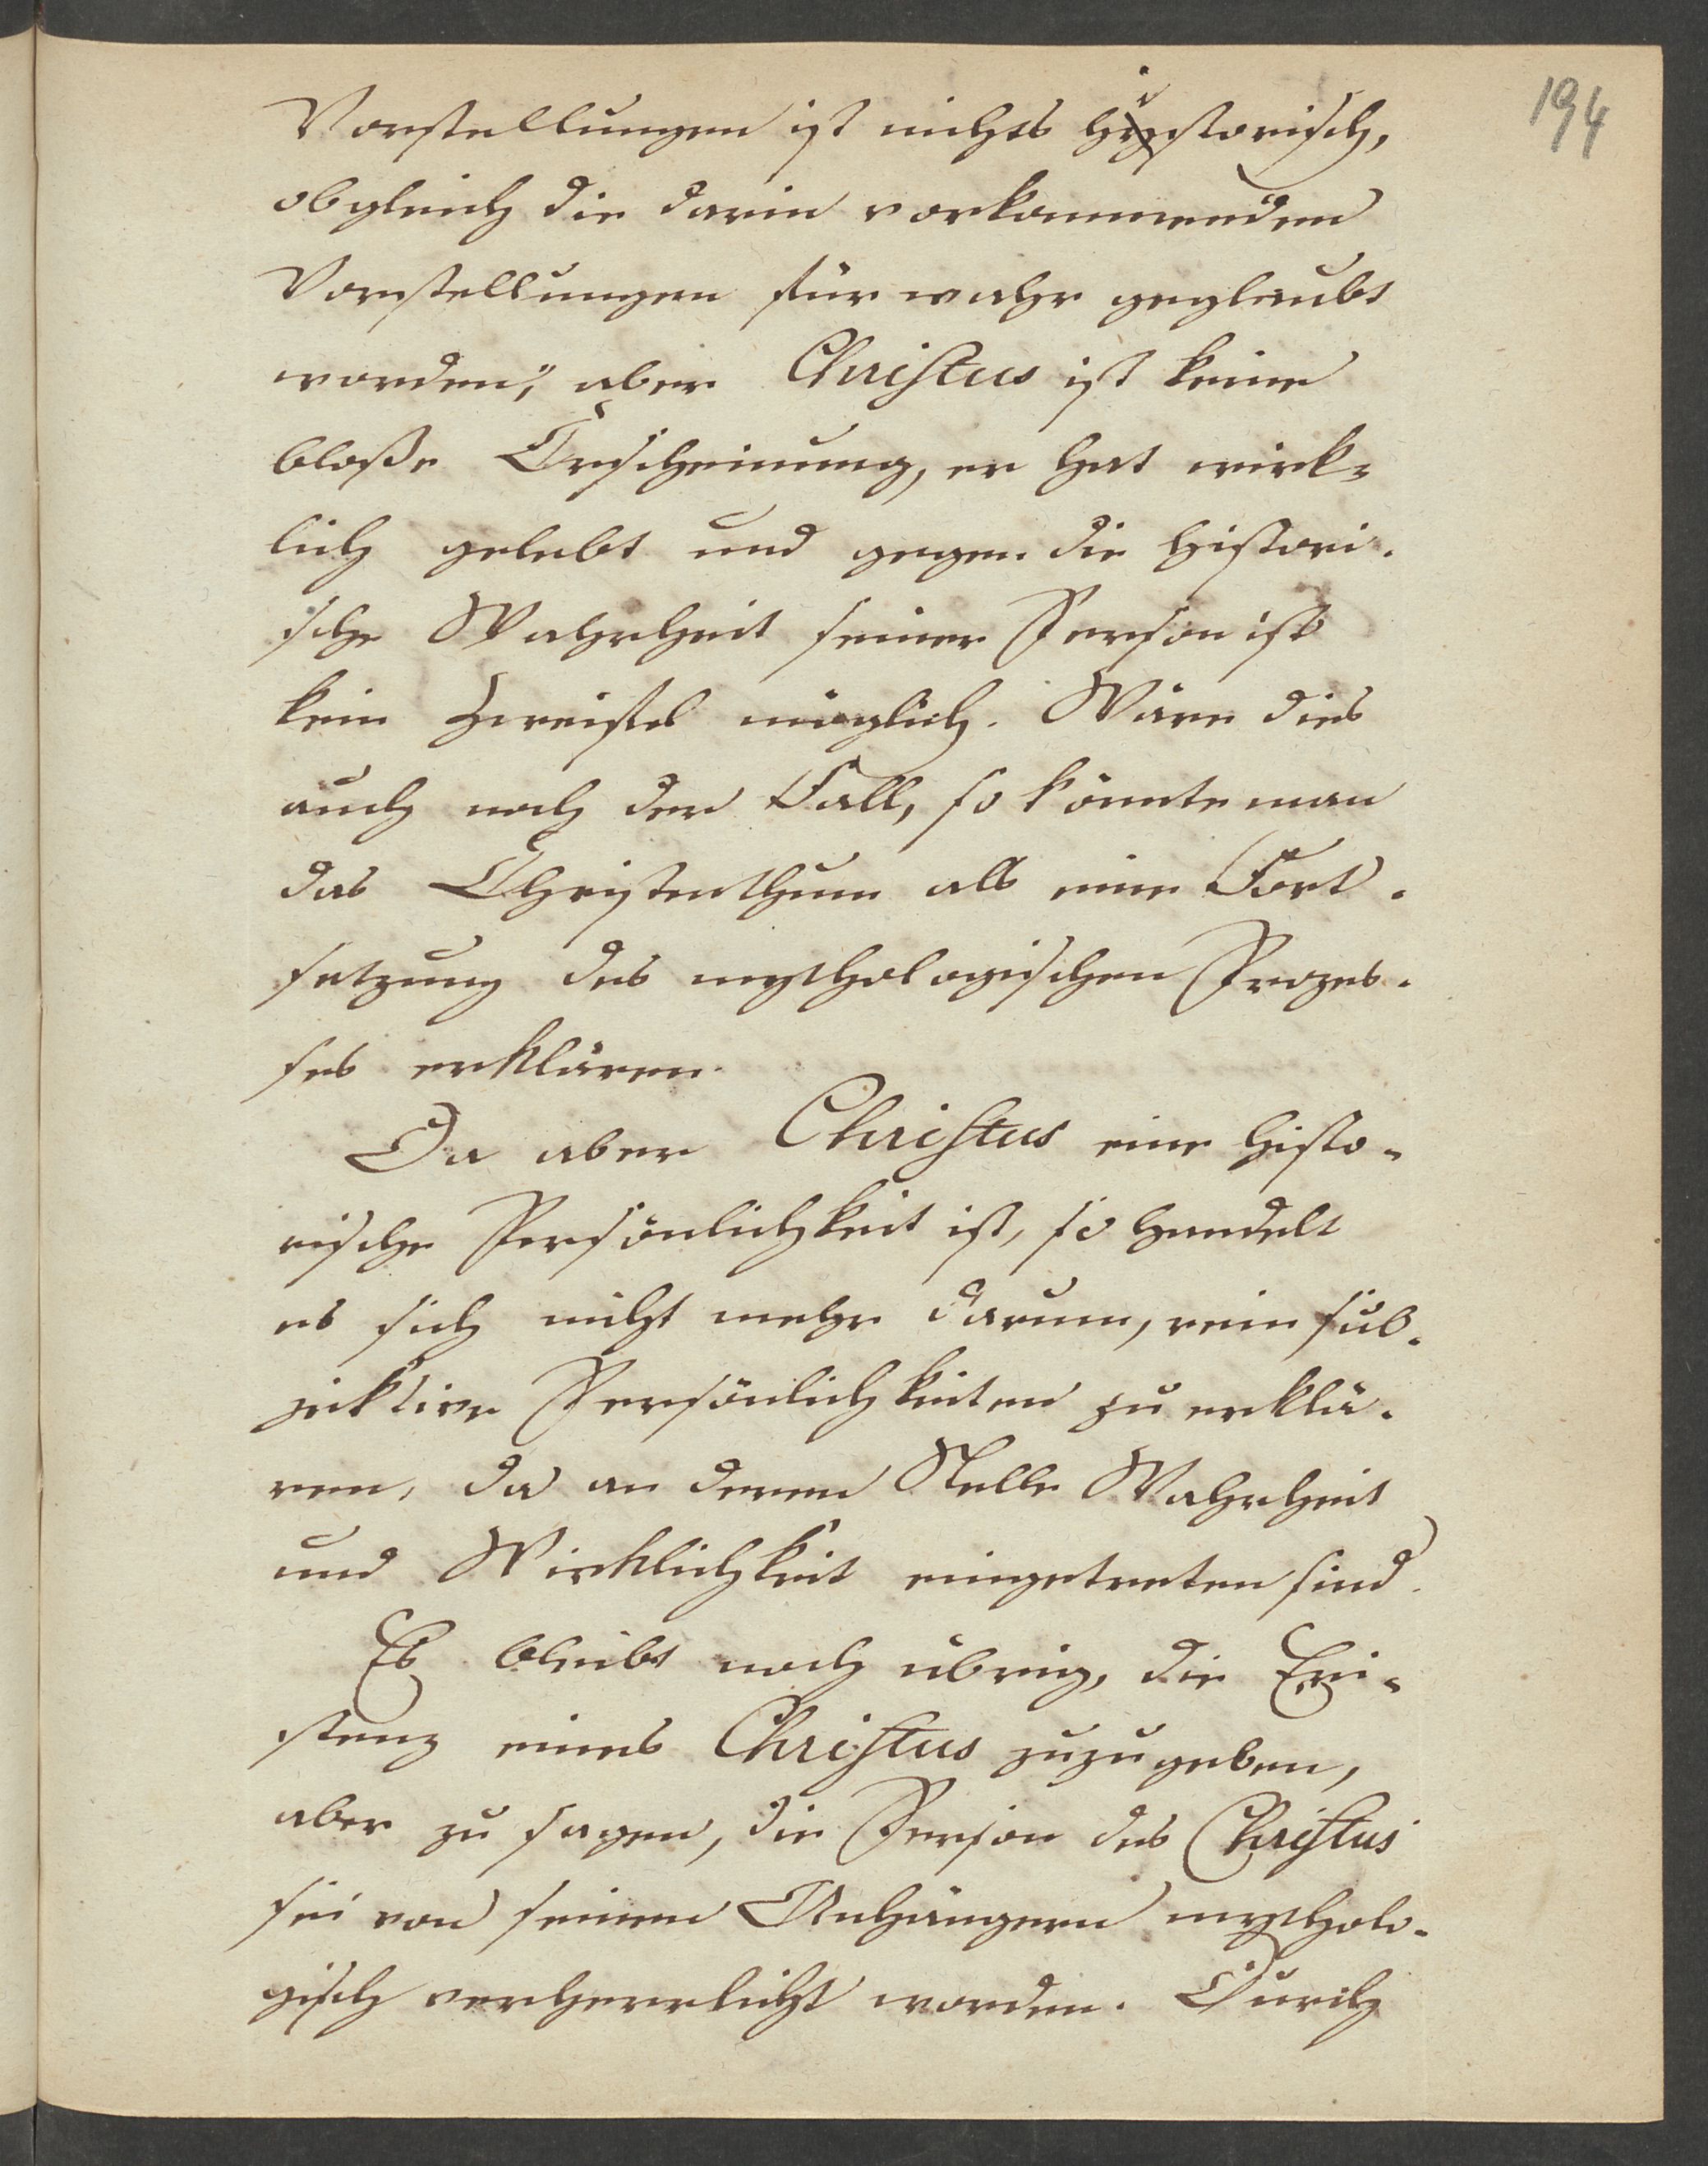 194
Vorstellungen ist nichts historisch,
obgleich die darin vorkommenden
Vorstellungen für wahr geglaubt
worden; aber Christus ist keine
bloße Erscheinung, er hat wirk-
lich gelebt und gegen die histori-
sche Wahrheit seiner Person ist
kein Zweifel möglich. Wäre dies
auch noch der Fall, so könnte man
das Christenthum als eine Fort-
setzung des mythologischen Prozes-
ses erklären.
Da aber Christus eine histo-
rische Persönlichkeit ist, so handelt
es sich nicht mehr darum, rein sub-
jektive Persönlichkeiten zu erklä-
ren, da an deren Stelle Wahrheit
und Wirklichkeit eingetreten sind.
Es bleibt noch übrig, die Exi-
stenz eines Christus zuzugeben,
aber zu sagen, die Person des Christus
sei von seinen Anhängern mytholo-
gisch verherrlicht worden. Durch